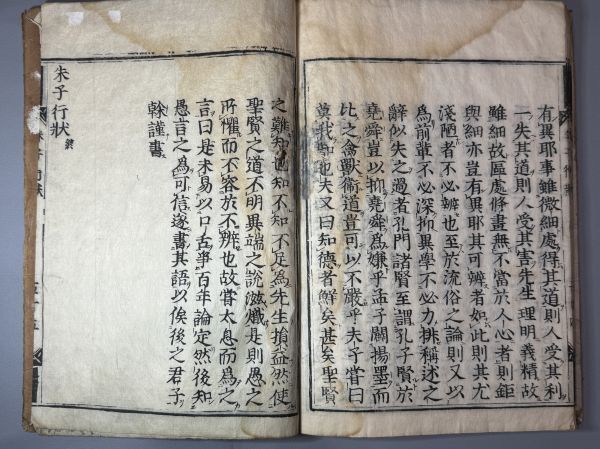 有異耶事雖微細處得其道則人受其利
一失其道則人受其害先生理明義精故
雖細故區處條畫無不當於人心者則鉅
與細亦豈有異耶其可辨者如此則其尤
淺陋者不必辨也至於流俗之論則又以
爲前輩不必深抑異學不必力排稱述之
辭似失之過者孔門諸賢至謂孔子賢於
堯舜豈以抑堯舜爲嫌乎孟子闢楊墨而
比之禽獸衞道豈可以不嚴乎夫子嘗曰
莫我知也夫又曰知德者鮮矣甚矣聖賢
之難知也知不知不足爲先生損益然使
聖賢之道不明異端之説滋熾是則愚之
所懼而不容於不辨也故嘗太息而爲之
言曰是未易以口舌爭百年論定然後知
愚言之爲可信遂書其語以俟後之君子
榦謹書
朱子行狀